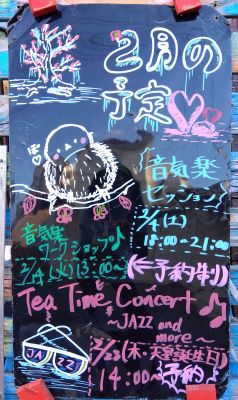 2月の
予定
ぽ
音気楽
セッション
2/4(土)
18:00~21:00
音気楽
ワークショップ♪
13:00~
(←予約制)
Tea Time Concert ♪
~JAZZ and
more~
2/23(木・天皇誕生日)
14:00~予約
JAZZ